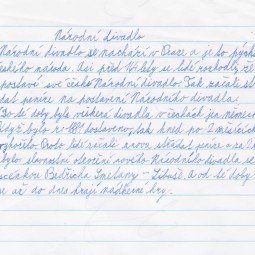 Národní divadlo
Národní divadlo se nachází v Praze a je to pýcha
českého národa. Asi před lety se lidé rozhodly, že
postaví své české Národní divadlo. Tak začali stř
dat peníze na postavení Národního divadla.
Do té doby byla veškerá divadla v čechách jen německ
když bylo dostaveno, tak hned po 2 měsících
vyhořelo. Proto lidé začali znova střádat peníze a za 2
bylo slavnostní otevření nového Národního divadla se
Bedřicha Smetany - Libuše. A od té doby
se až do dnes hrají nádherné hry.